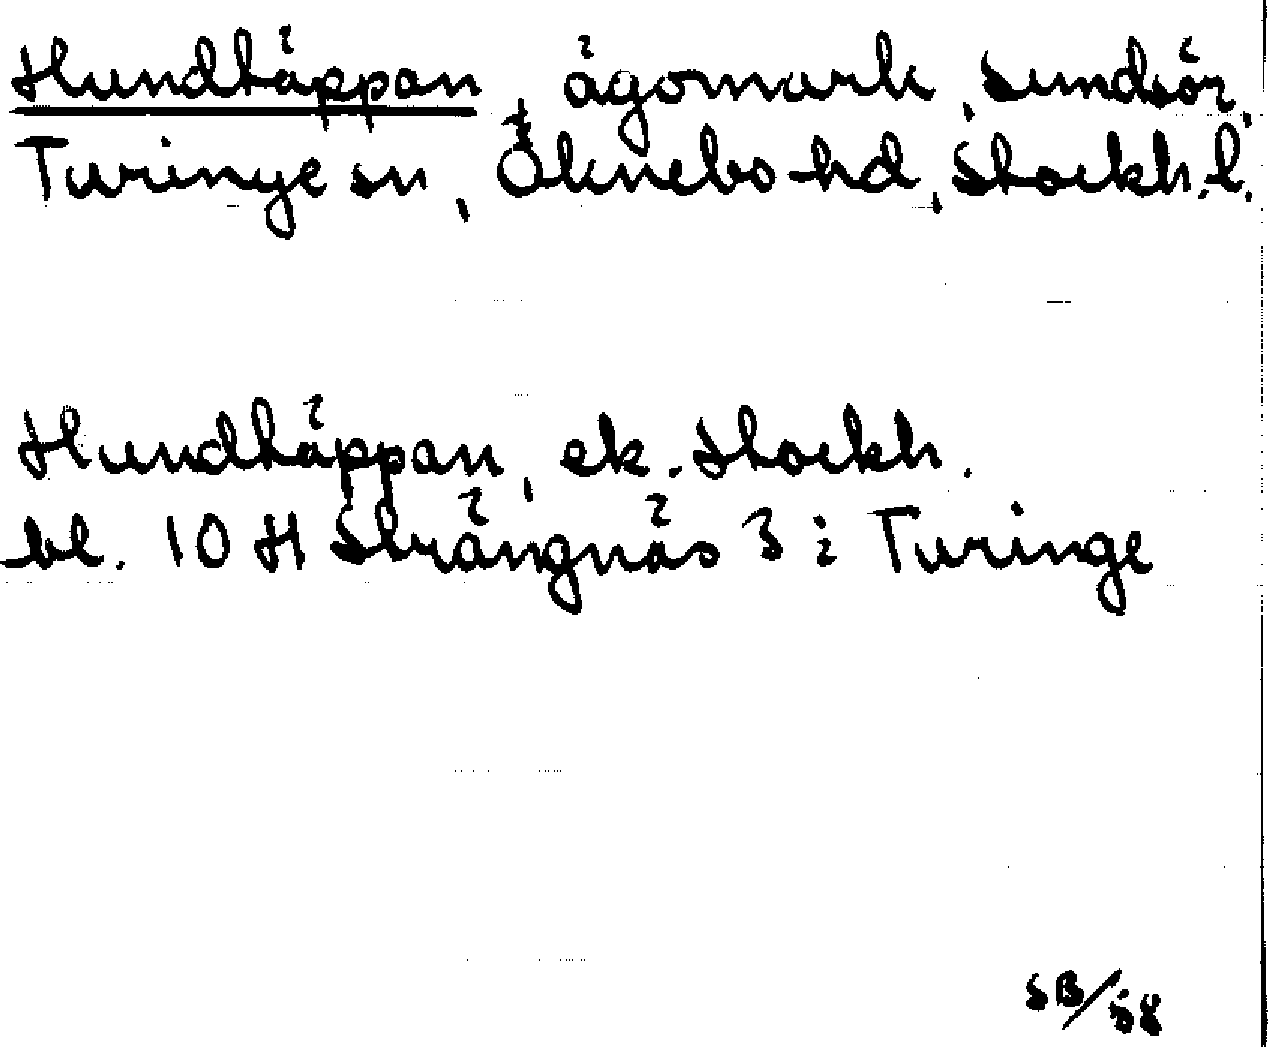 Hundkäppan, ägomark, Sundsör,
Turinge sn, Öknebo hd, Stockh. l.
Hundkäppan, ek. Stockh.
bl. 10 H Strängnäs 3 i Turinge
SB/58